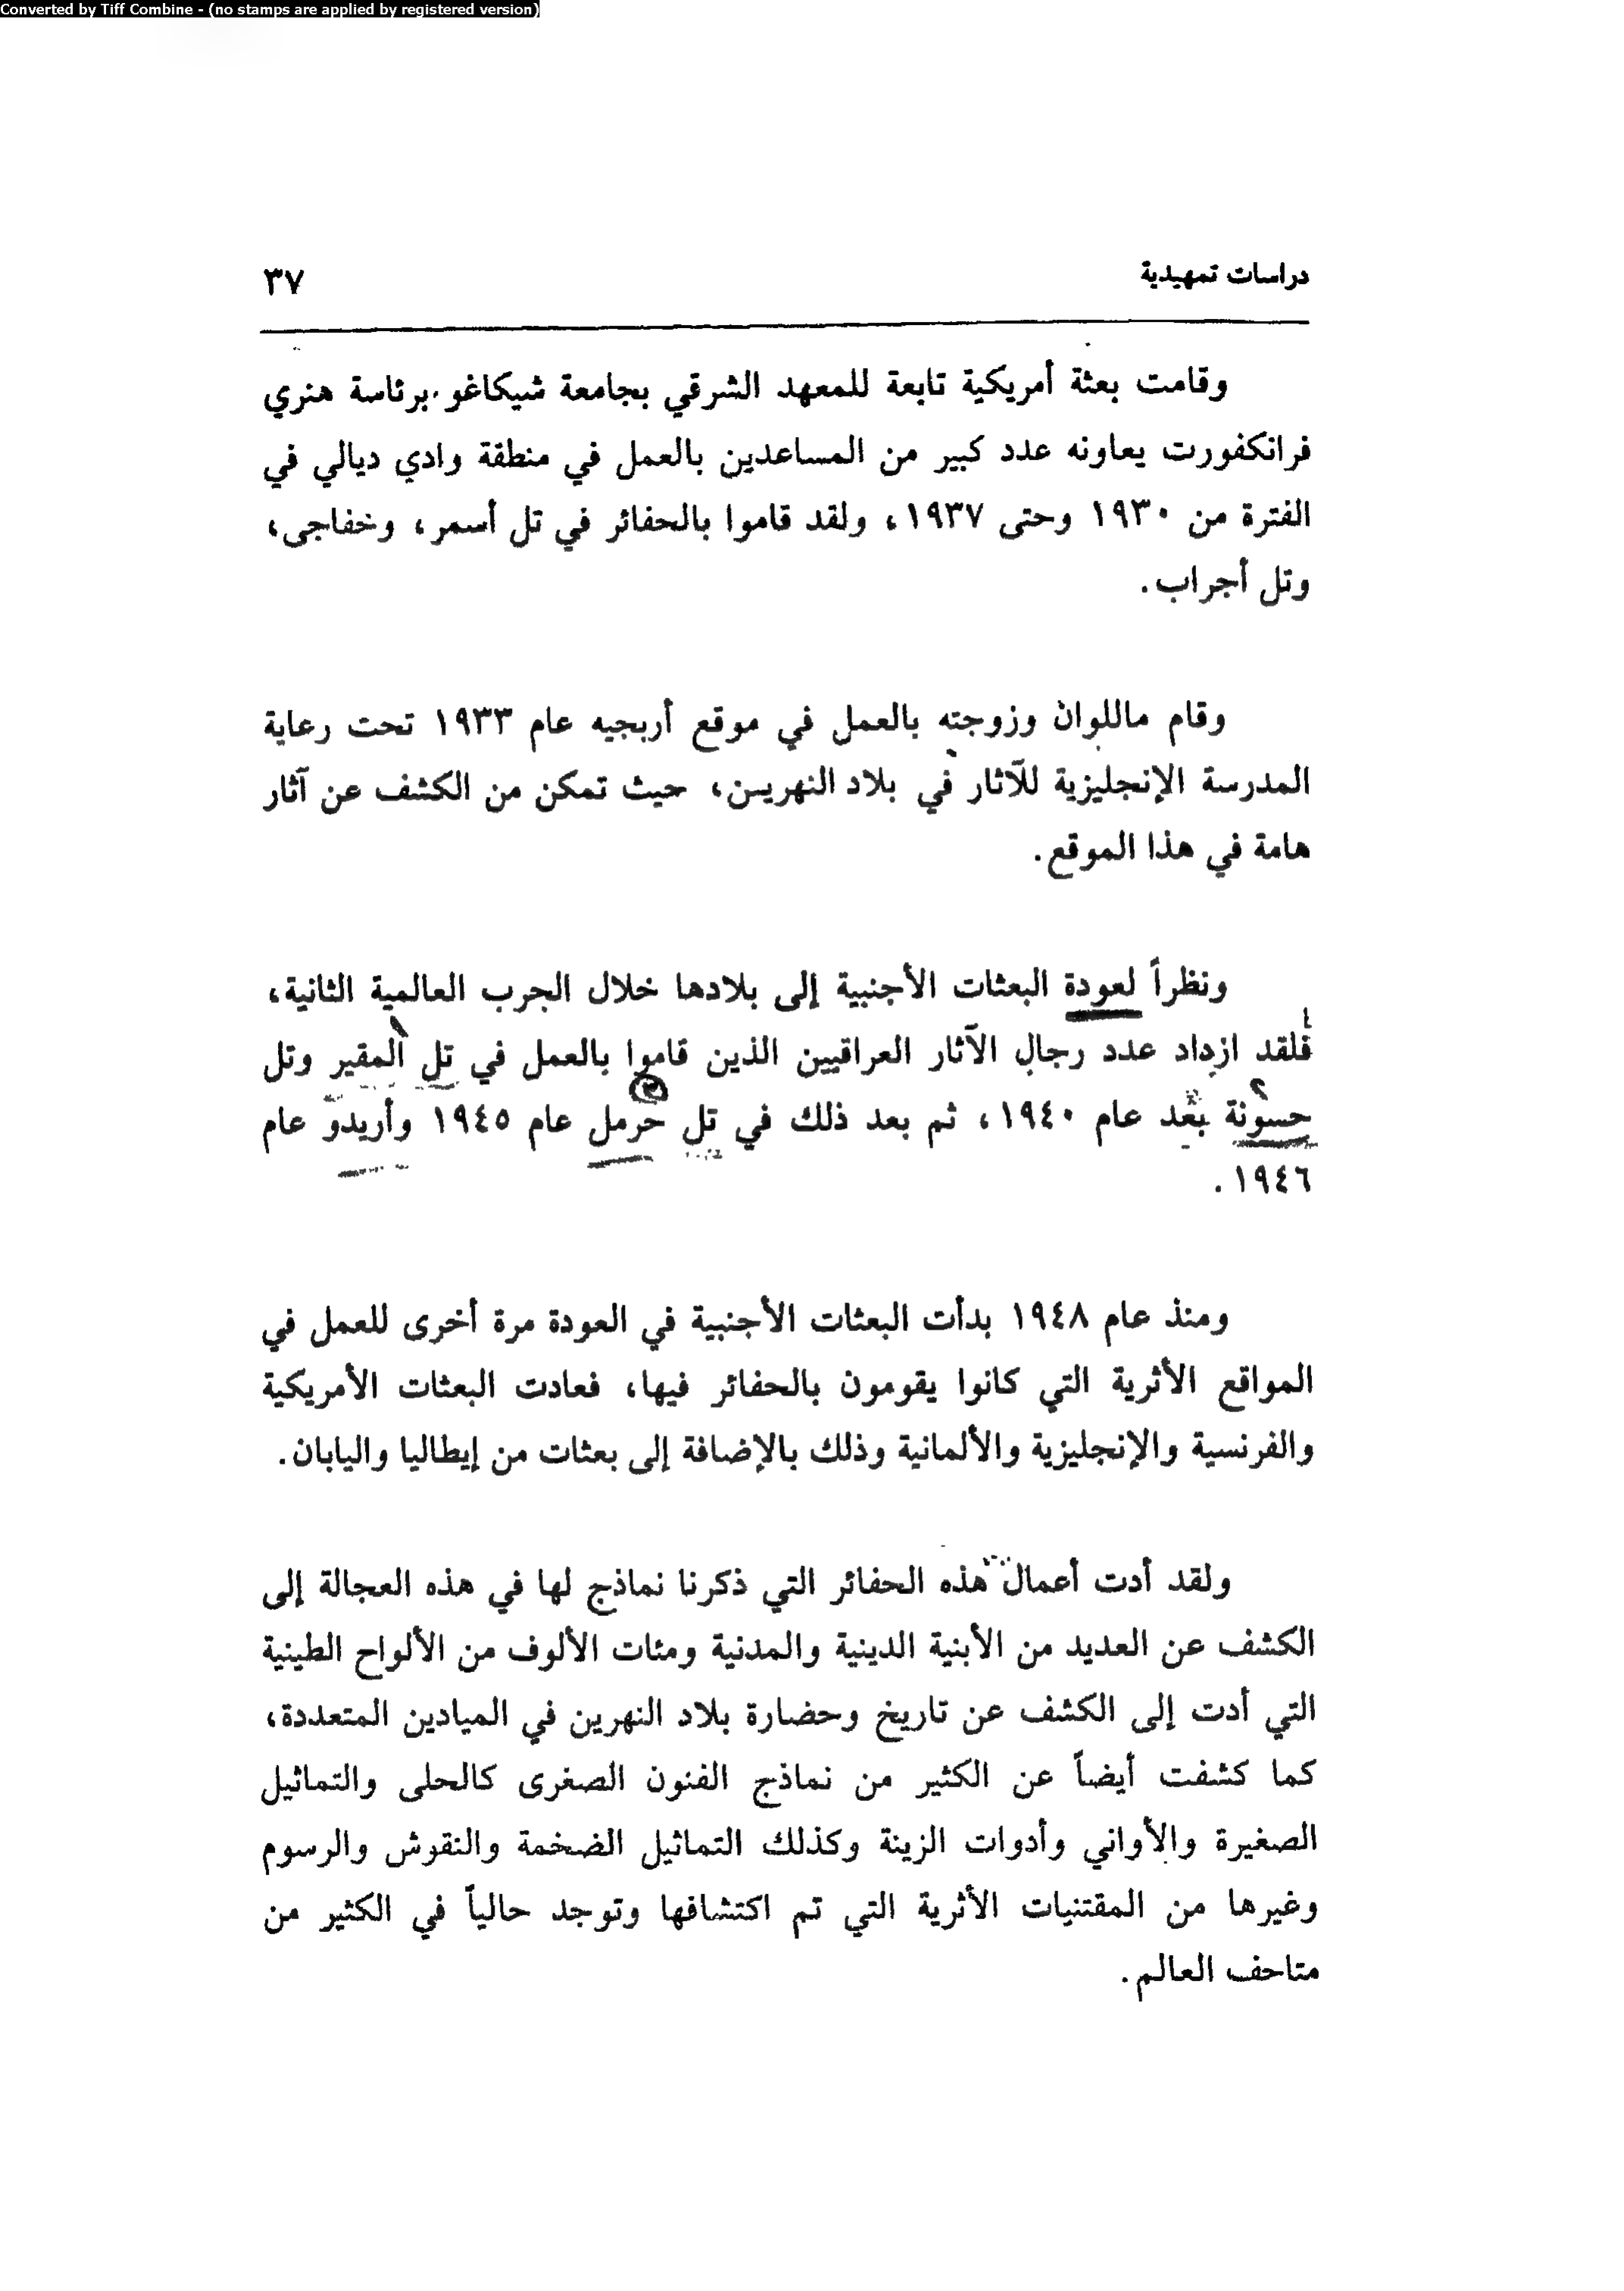 Converted by Tiff Combine - (no stamps are applied by registered version)
دراسات تمهيدية
٣٧
وقامت بعثة أمريكية تابعة للمعهد الشرقي بجامعة شيكاغو برئاسة هنري
فرانكفورت يعاونه عدد كبير من المساعدين بالعمل في منطقة وادي ديالي في
الفترة من ١٩٣٠ وحتى ١٩٣٧، ولقد قاموا بالحفائر في تل أسمر، وخفاجى،
وتل أجراب.
وقام ماللوان وزوجته بالعمل في موقع أربجيه عام ١٩٣٣ تحت رعاية
المدرسة الإنجليزية للآثار في بلاد النهريـن، حيث تمكن من الكشف عن آثار
هامة في هذا الموقع.
ونظراً لعودة البعثات الأجنبية إلى بلادها خلال الجرب العالمية الثانية،
فلقد ازداد عدد رجال الآثار العراقيين الذين قاموا بالعمل في تل المقير وتل
حسونة بعد عام ١٩٤٠، ثم بعد ذلك في تل حرمل عام ١٩٤٥ وأريدو عام
١٩٤٦.
ومنذ عام ١٩٤٨ بدأت البعثات الأجنبية في العودة مرة أخرى للعمل في
المواقع الأثرية التي كانوا يقومون بالحفائر فيها، فعادت البعثات الأمريكية
والفرنسية والإنجليزية والألمانية وذلك بالإضافة إلى بعثات من إيطاليا واليابان.
ولقد أدت أعمال هذه الحفائر التي ذكرنا نماذج لها في هذه العجالة إلى
الكشف عن العديد من الأبنية الدينية والمدنية ومئات الألوف من الألواح الطينية
التي أدت إلى الكشف عن تاريخ وحضارة بلاد النهرين في الميادين المتعددة،
كما كشفت أيضاً عن الكثير من نماذج الفنون الصغرى كالحلى والتماثيل
الصغيرة والأواني وأدوات الزينة وكذلك التماثيل الضخمة والنقوش والرسوم
وغيرها من المقتنيات الأثرية التي تم اكتشافها وتوجد حالياً في الكثير من
متاحف العالم.